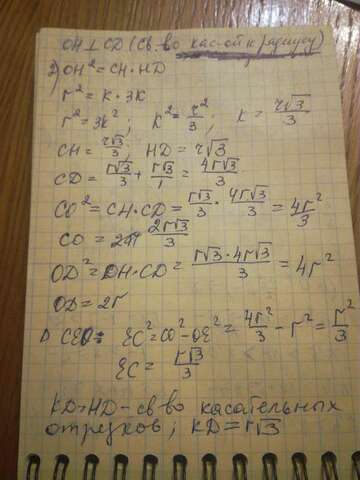 OH⊥CD (св-во кас-ой к радиусу)
2) OH² = CH·HD
r² = K·3K
r² = 3K²; K² = r²/3; K = r√3/3
CH = r√3/3; HD = r√3
CD = r√3/3 + r√3/1 = 4r√3/3
CO² = CH·CD = r√3/3 · 4r√3/3 = 4r²/3
CO = 2r√3/3
OD² = DH·CD = r√3·4r√3/3 = 4r²
OD = 2r
Δ CEO: EC² = CO² - OE² = 4r²/3 - r² = r²/3
EC = r√3/3
KD=HD - св-во касательных
отрезков; KD = r√3